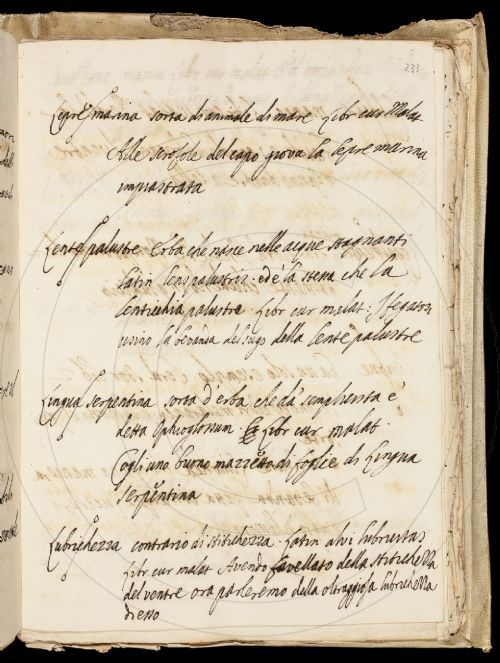 233
Lepre marina sorta di animale di mare Libr cur Malat
Alle scrofole del capo giova la lepre marina
impiastrata
Lente palustre Erba che nasce nelle acque stagnanti
Latin Lens palustris. ed è la stessa che la
Lenticchia palustre Libr cur malat:
usino la bevanda del sugo della lente palustre
Lingua serpentina sorta d'erba che da' semplicista è
detta Ophioglossum. Libr cur malat
Cogli uno buono mazzetto di foglie di Lingua
serpentina
Lubrichezza contrario di Stitichezza. Latin alvi lubricitas
Libr cur malat Avendo favellato della stitichezza
del ventre ora parleremo della oltraggiosa lubrichezza
di esso